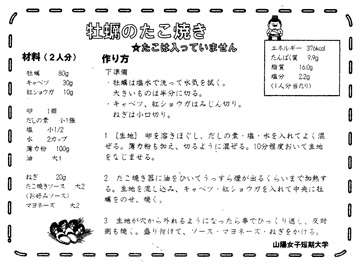 牡蠣のたこ焼き
★たこは入っていません
エネルギー 376kcal
たんぱく質 9.9g
脂質 16.0g
塩分 2.2g
(1人分当たり)
材料（２人分）
牡蠣 80g
キャベツ 30g
紅ショウガ 10g
卵 1個
だしの素 小1強
塩 小1/2
水 2カップ
薄力粉 100g
油 大1
ねぎ 20g
たこ焼きソース 大2
(お好みソース)
マヨネーズ 大2
作り方
下準備
・牡蠣は塩水で洗って水気を拭く。
大きいものは半分に切る。
・キャベツ、紅ショウガはみじん切り。
ねぎは小口切り。
1 [生地] 卵を溶きほぐし、だしの素・塩・水を入れてよく混
ぜる。薄力粉も加え、切るように混ぜる。10分程度おいて生地
をなじませる。
2 たこ焼き器に油をひいてうっすら煙が出るくらいまで加熱す
る。生地を流し込み、キャベツ・紅ショウガを入れて中央に牡
蠣をのせ、焼く。
3 生地が穴から外れるようになったら串でひっくり返し、反対
側も焼く。盛り付けて、ソース・マヨネーズ・ねぎをかける。
山陽女子短期大学